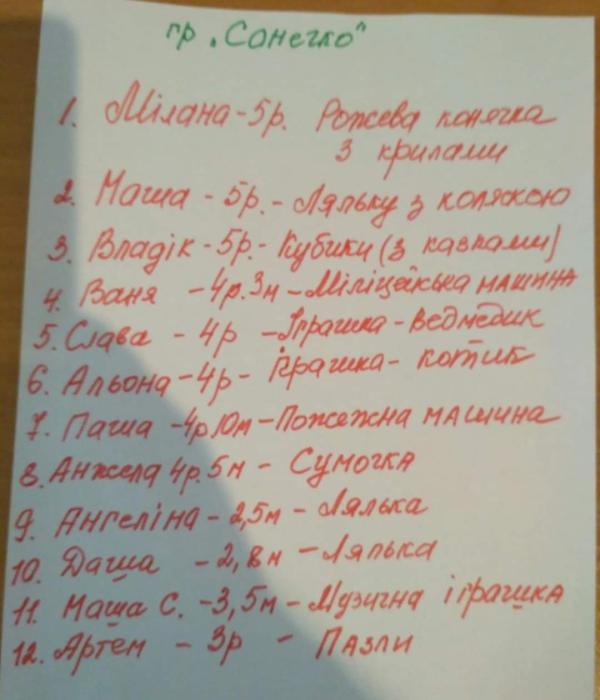 гр „Сонечко"
1. Мілана - 5р. Рожева конячка
з крилами
2. Маша - 5р. - Ляльку з коляскою
3. Владік - 5р. - Кубики (з казками)
4. Ваня - 4р. 3м - Міліцейська машина
5. Слава - 4р - Іграшка - Ведмедик
6. Альона - 4р - іграшка - котик
7. Паша - 4р 10м - Пожежна машина
8. Анжела 4р. 5м - Сумочка
9. Ангеліна - 2,5м - Лялька
10. Даша - 2,8м - Лялька
11. Маша С. - 3,5м - Музична іграшка
12. Артем - 3р - Пазли